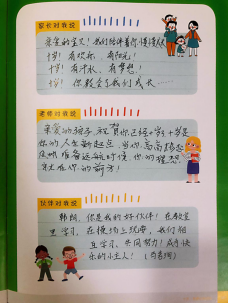 家长对我说
亲爱的宝贝！我们陪伴着你慢慢长
十岁！有欢乐，有阳光！
十岁！有汗水，有梦想！
十岁！你教会了我们成长……
老师对我说
亲爱的孩子，祝贺你已经十岁！十岁是
你的人生新起点，当你高高扬起
风帆准备远航时候，你的理想
你的前方！
伙伴对我说
你是我的好伙伴！在教室
里学习，在操场上玩耍，我们相
互学习、共同努力！成为快
乐的小主人！